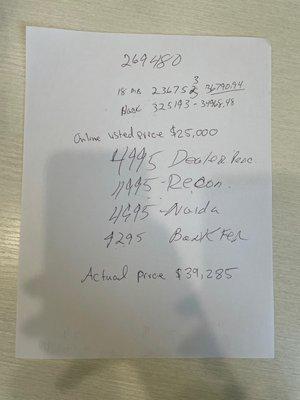 269480
18 MB 236752 3 36790.94
Black 325193 - 34968.48
Online listed price $25,000
4995 Dealer
4995 - Recon.
4995 -
4295 Bank Fee
Actual price $39,285